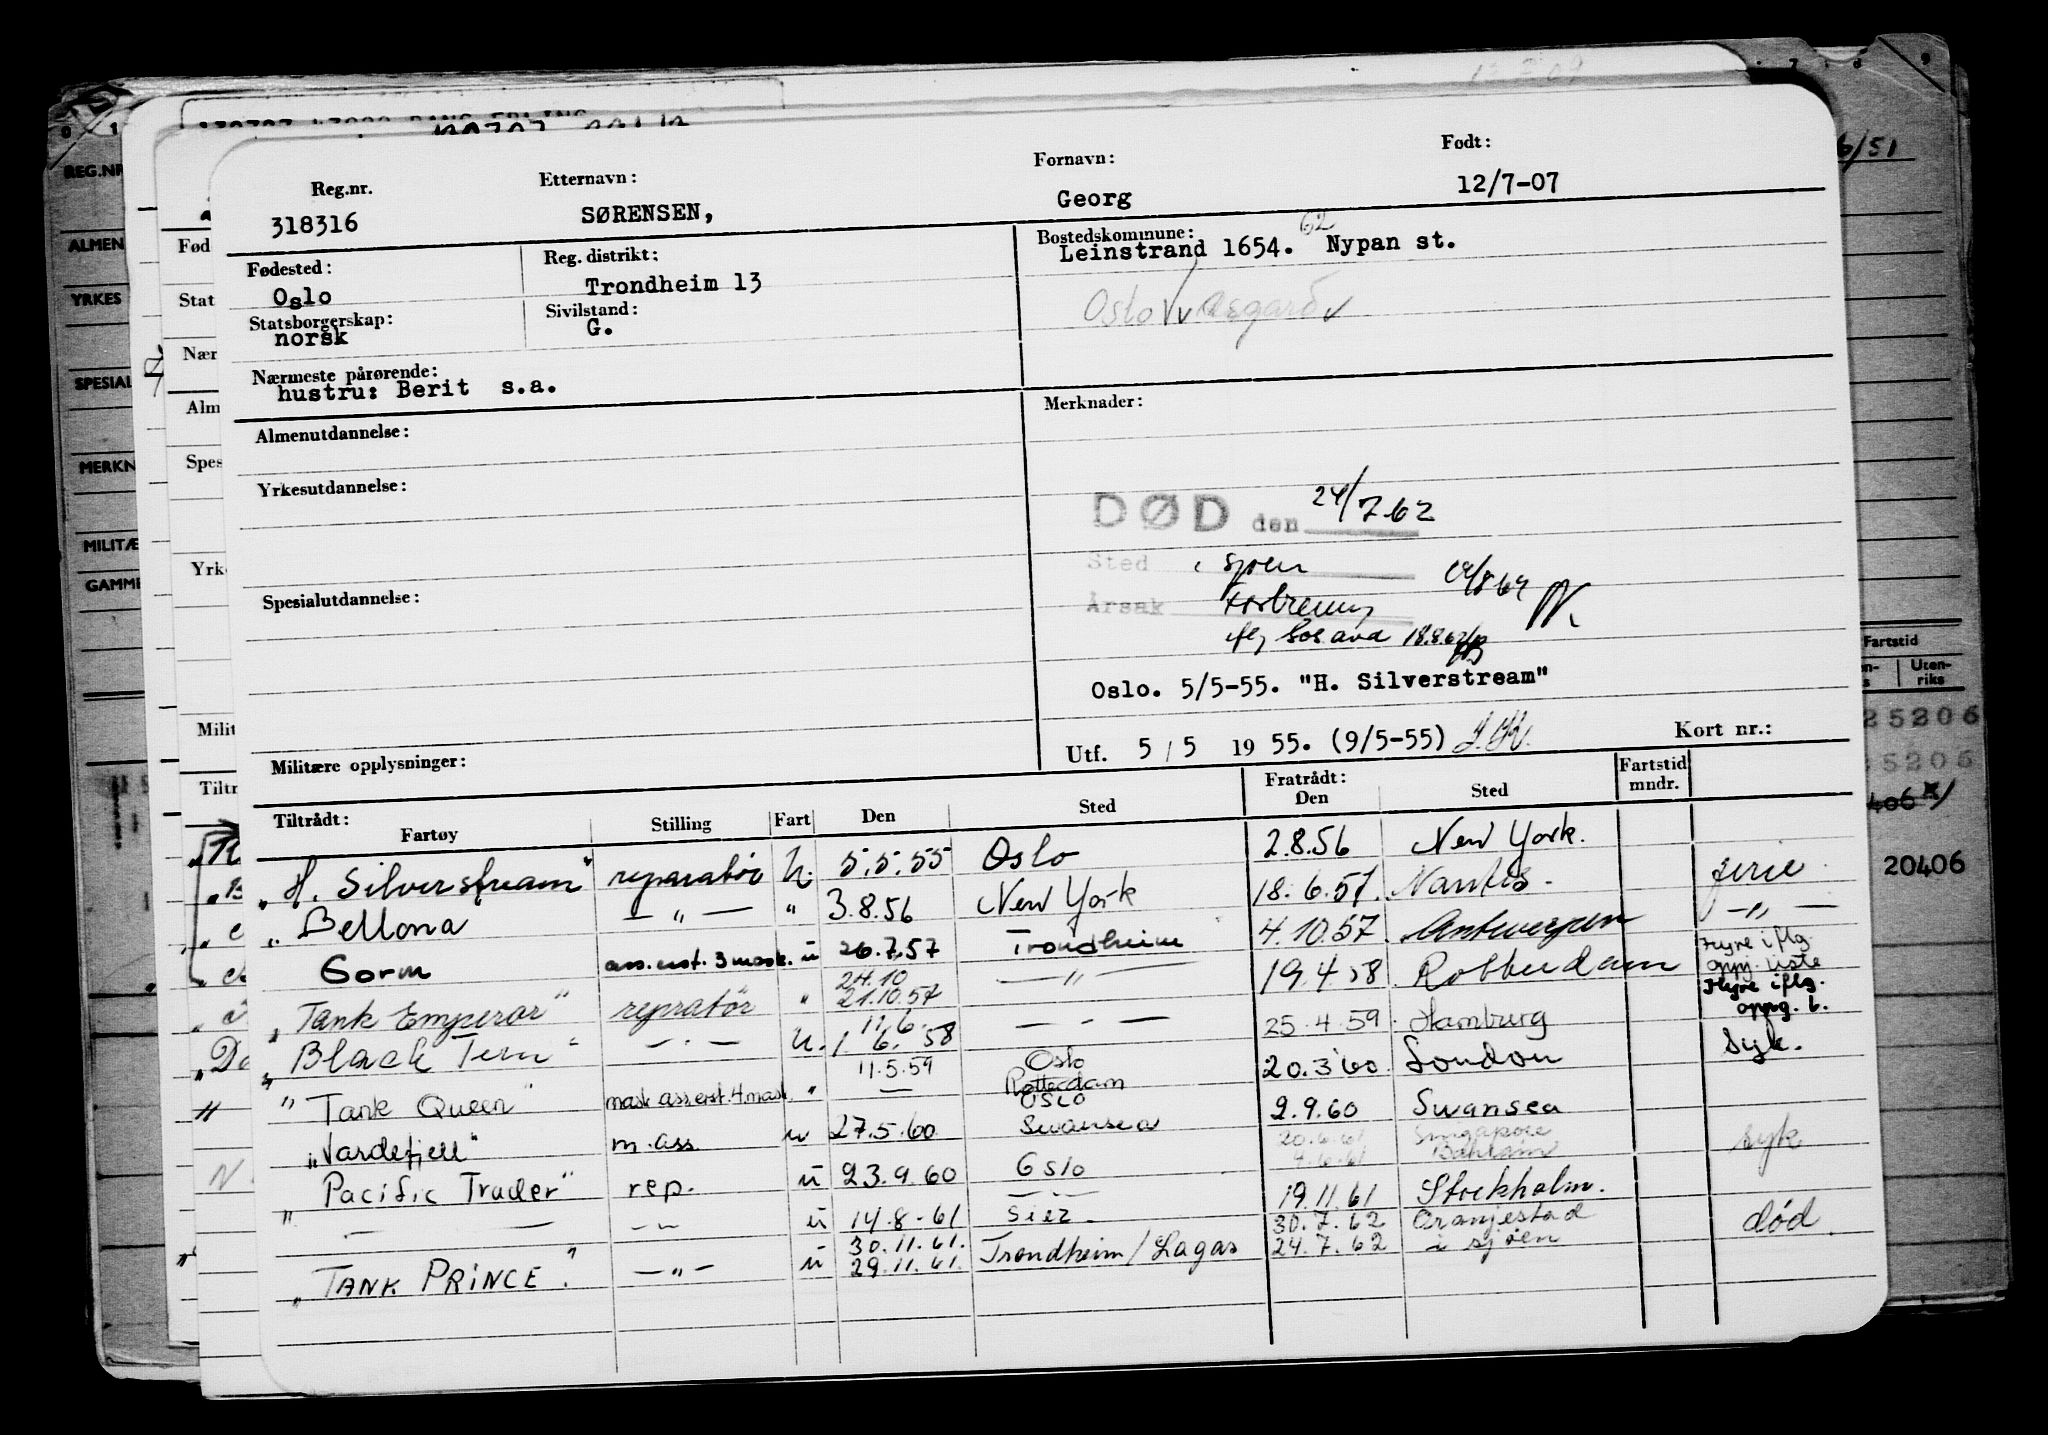 6/51
Reg.nr. Etternavn: Fornavn: Født:
318316 SØRENSEN, Georg 12/7-07
Fødested: Reg. distrikt: Bostedskommune: 62
Oslo Trondheim 13 Leinstrand 1654. Nypan st.
Statsborgerskap: Sivilstand:
norsk G. Oslo
Nærmeste pårørende:
hustru: Berit s.a.
Almenutdannelse: Merknader:
Yrkesutdannelse:
DØD den 24/7.62
Sted i sjøen
Årsak
Spesialutdannelse:
18.8.62
Oslo. 5/5-55. "H. Silverstream"
Militære opplysninger: Utf. 5/5 1955. (9/5-55) Kort nr.:
Tiltrådt: Fratrådt: Fartstid
Fartøy Stilling Fart Den Sted Den Sted mndr.
"H. Silverstream" reparatør U. 5.5.55 Oslo 2.8.56 New York.
"Bellona — " — " 3.8.56 New York 18.6.57. Nantes. ferie.
Gorm ass.erst. 3 mask. u 26.7.57 Trondheim 4.10.57. Antwerpen — " —
"Tank Emperor" repratør " 24.10 21.10.57 — " — 19.4.58 Rotterdam Hyre iflg. oppg. liste
"Black Tern" — " — U. 11.6. 1.6.58 — " — 25.4.59 Hamburg Hyre iflg. oppg. l.
"Tank Queen" mask ass.erst. 4.mask. " 11.5.59 — Oslo Rotterdam 20.3.60. London Syk.
"Vardefjell" m.ass. u 27.5.60 Oslo Swansea 2.9.60 Swansea
"Pacific Trader" rep. u 23.9.60 Oslo 20.6.61 Singapore 9.6.61 Bahrain syk
" — — — " — u 14.8.61 Suez. 19.11.61 Stockholm.
"TANK PRINCE". — " — u 30.11.61. 29.11.61. Trondheim/Lagas 30.7.62 Oranjestad 24.7.62 i sjøen død.
REG.NR
ALMEN
YRKES
SPESIAL
MERKN
MILITÆ
GAMME
Fød
Stat
Nær
Alm
Spes
Yrke
Milit
Tiltr
Fartstid
Uten-
riks
25206
5206
406
20406